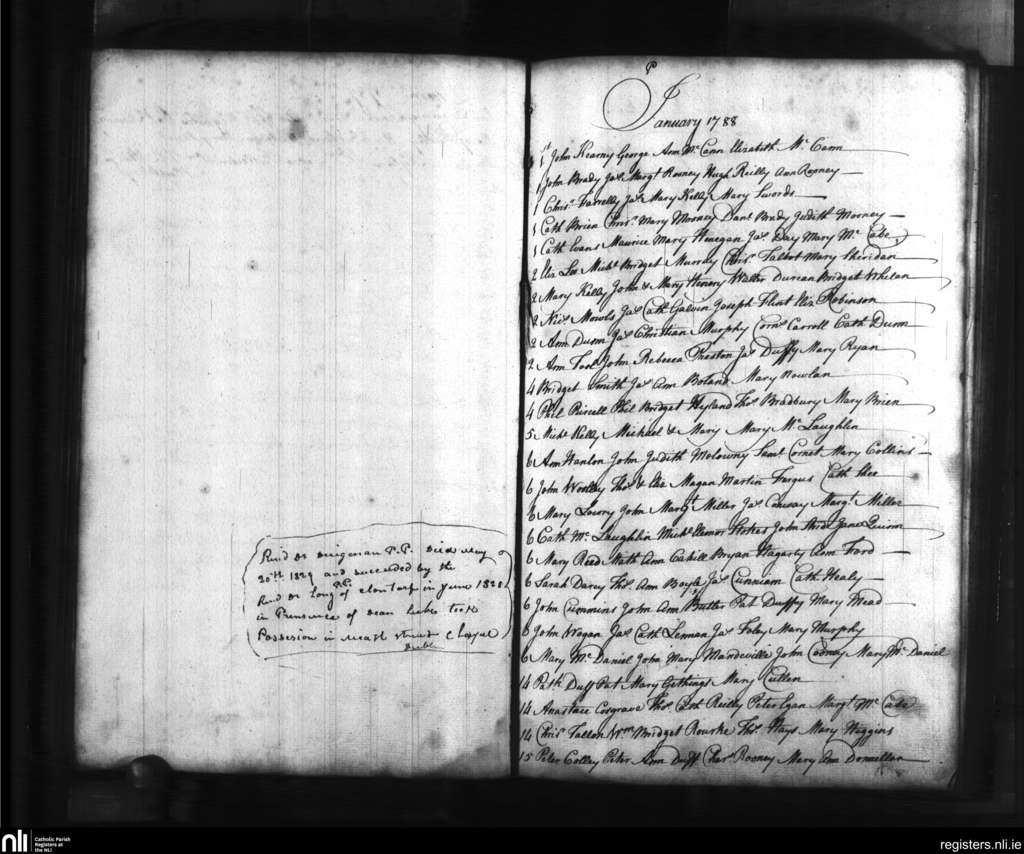 Revd Dr Purigeman P.P. Died May
20th 1829 and succeeded by the
Revd Dr Long P.P. of Clontarf in June 1828
in Presence of Dean Lube took
Possesion in Meath Street Chapel
Dublin
P
January 1788
1 John Kearny George Ann Mc Cann Elizabeth Mc Cann
1 John Brady Jas Margt Rooney Hugh Reilly Ann Rooney
1 Chrisr Farrelly Jas Mary Kelly Mary Swords
1 Cath Brien Chrisr Mary Mooney Danl Brady Judith Mooney
1 Cath Evans Maurice Mary Henegan Jas Day Mary Mc Cabe
2 Eliz Lee Michl Bridget Murray Chrisr Talbot Mary Sheridan
2 Mary Kelly John & Mary Henery Walter Durean Bridget Whelan
2 Nics Mowls Jas Cath Galvin Joseph Flint Eliz Robinson
2 Ann Dunn Jas Christian Murphy Corns Carroll Cath Dunn
2 Ann Fool John Rebecca Preston Jas Duffy Mary Ryan
4 Bridget Smith Jas Ann Boland Mary Nowlan
4 Phil Pursell Phil Bridget Hyland Thos Bradbury Mary Brien
5 Michl Kelly Michael & Mary Mary Mc Laughlin
6 Ann Hanlon John Judith Molowny Saml Cornet Mary Collins
6 John Woolley Thos & Eliz Magan Martin Fergus Cath Shee
6 Mary Lowry John Margt Miller Jas Conway Margt Miller
6 Cath Mc Laughlin Michl Elenor Stokes John Ford Jane Quinn
6 Mary Reed Math Ann Cahill Bryan Hagerty Ann Ford
6 Sarah Darcy Thos Ann Boyle Jas Cunniam Cath Healy
6 John Cummins John Ann Butler Pat Duffy Mary Mead
6 John Wogan Jas Cath Lennan Jas Foley Mary Murphy
6 Mary Mc Daniel John Mary Mandeville John Cooney Mary Mc Daniel
14 Patk Duff Pat Mary Gethings Mary Cullen
14 Anastace Cosgrave Thos Cath Reilly Peter Egan Margt Mc Cabe
14 Chrisr Fallon Wm Bridget Rourke Thos Hays Mary Higgins
15 Peter Colley Peter Ann Duff Chas Rooney Mary Ann Donnellan
nli
Catholic Parish
Registers at
the NLI
registers.nli.ie